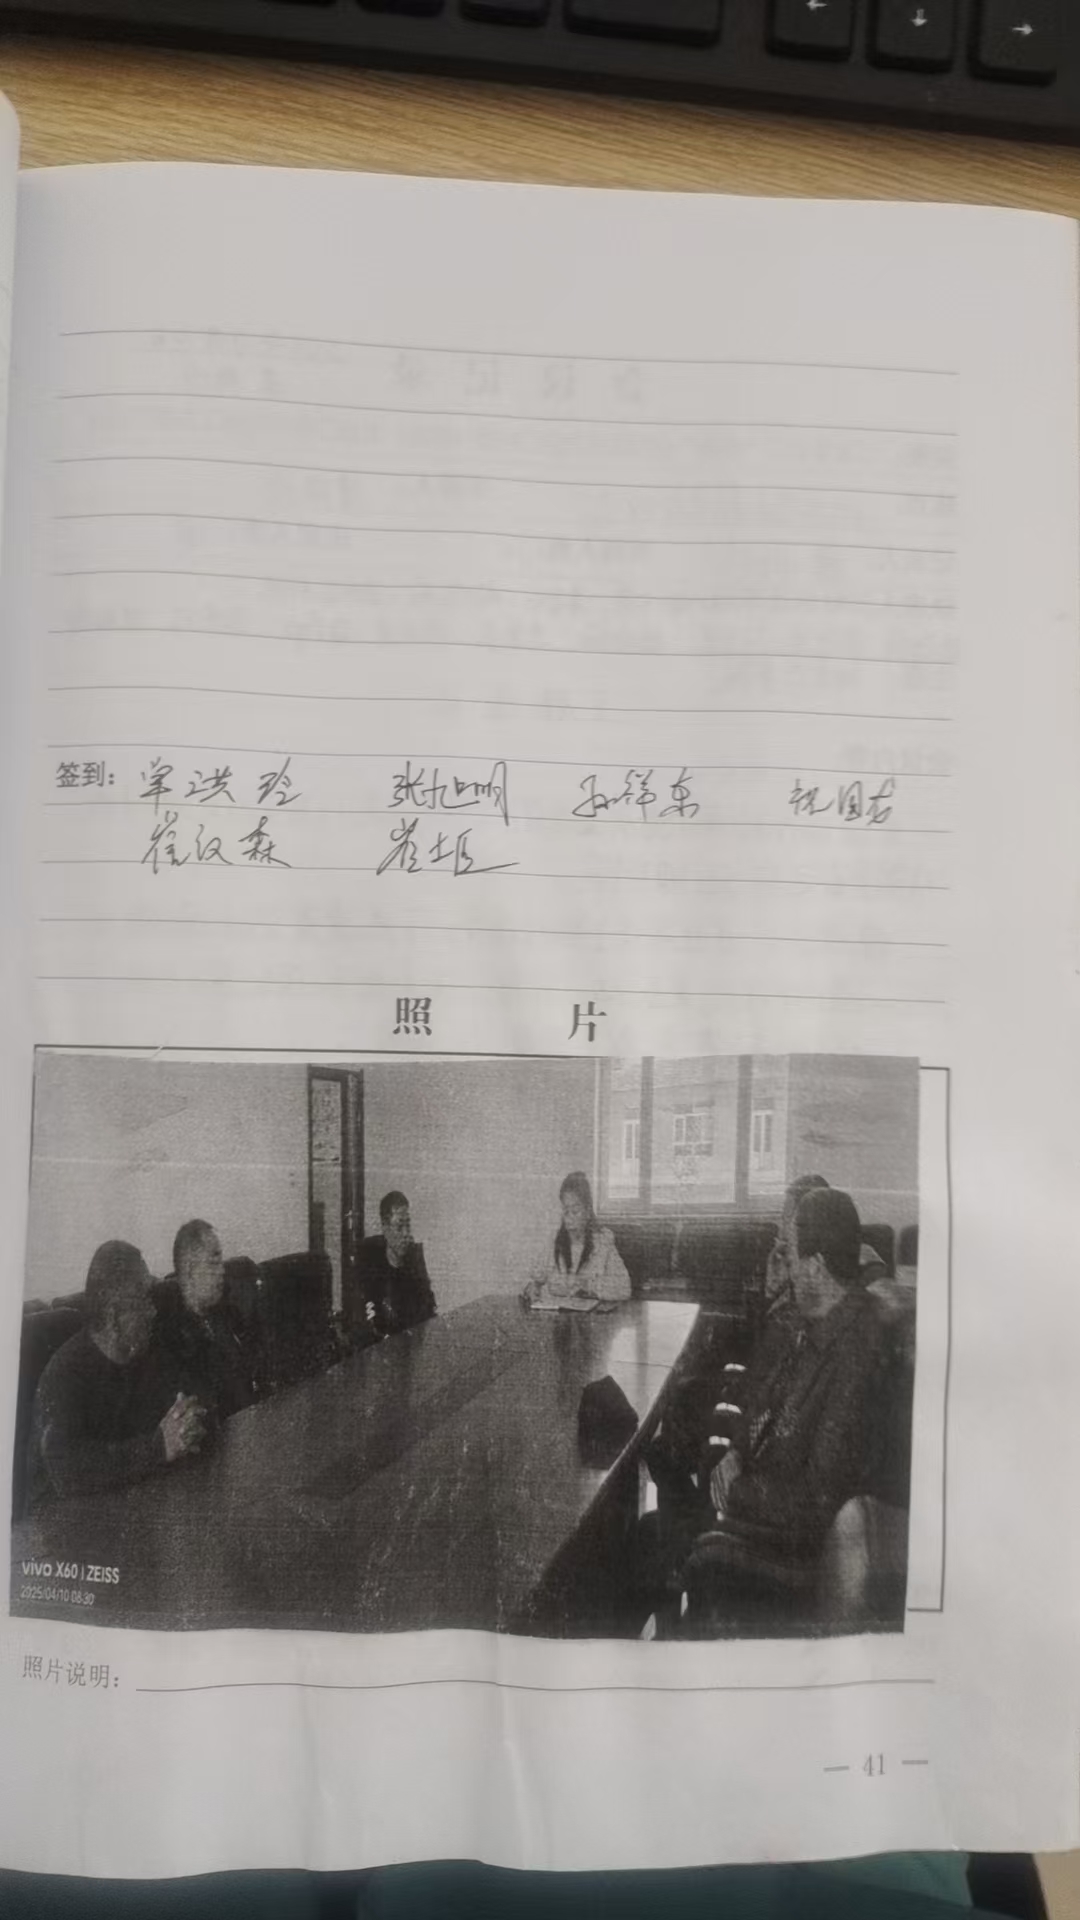 签到: 单洪玲 张旭明 孙祥东 祝国友
崔汉森 崔士臣
照 片
vivo X60 | ZEISS
2025/04/10 08:30
照片说明:
— 41 —